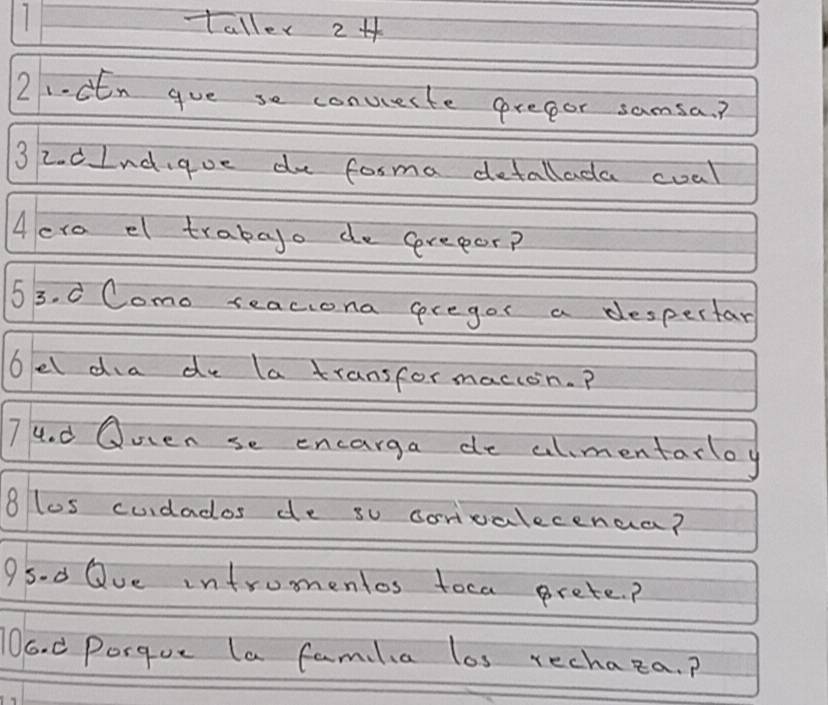 1 Taller 2 #
2 1-¿En que se convierte gregor samsa.?
3 2.¿Indique de forma detallada cual
4 era el trabajo de gregor?
5 3.¿Como reacciona gregor a despertar
6 el dia de la transformación.?
7 4.¿Quien se encarga de alimentarlo y
8 los cuidados de su convalecencia?
9 5.¿Que intrumentos toca grete.?
10 6.¿Porque la familia los rechaza.?